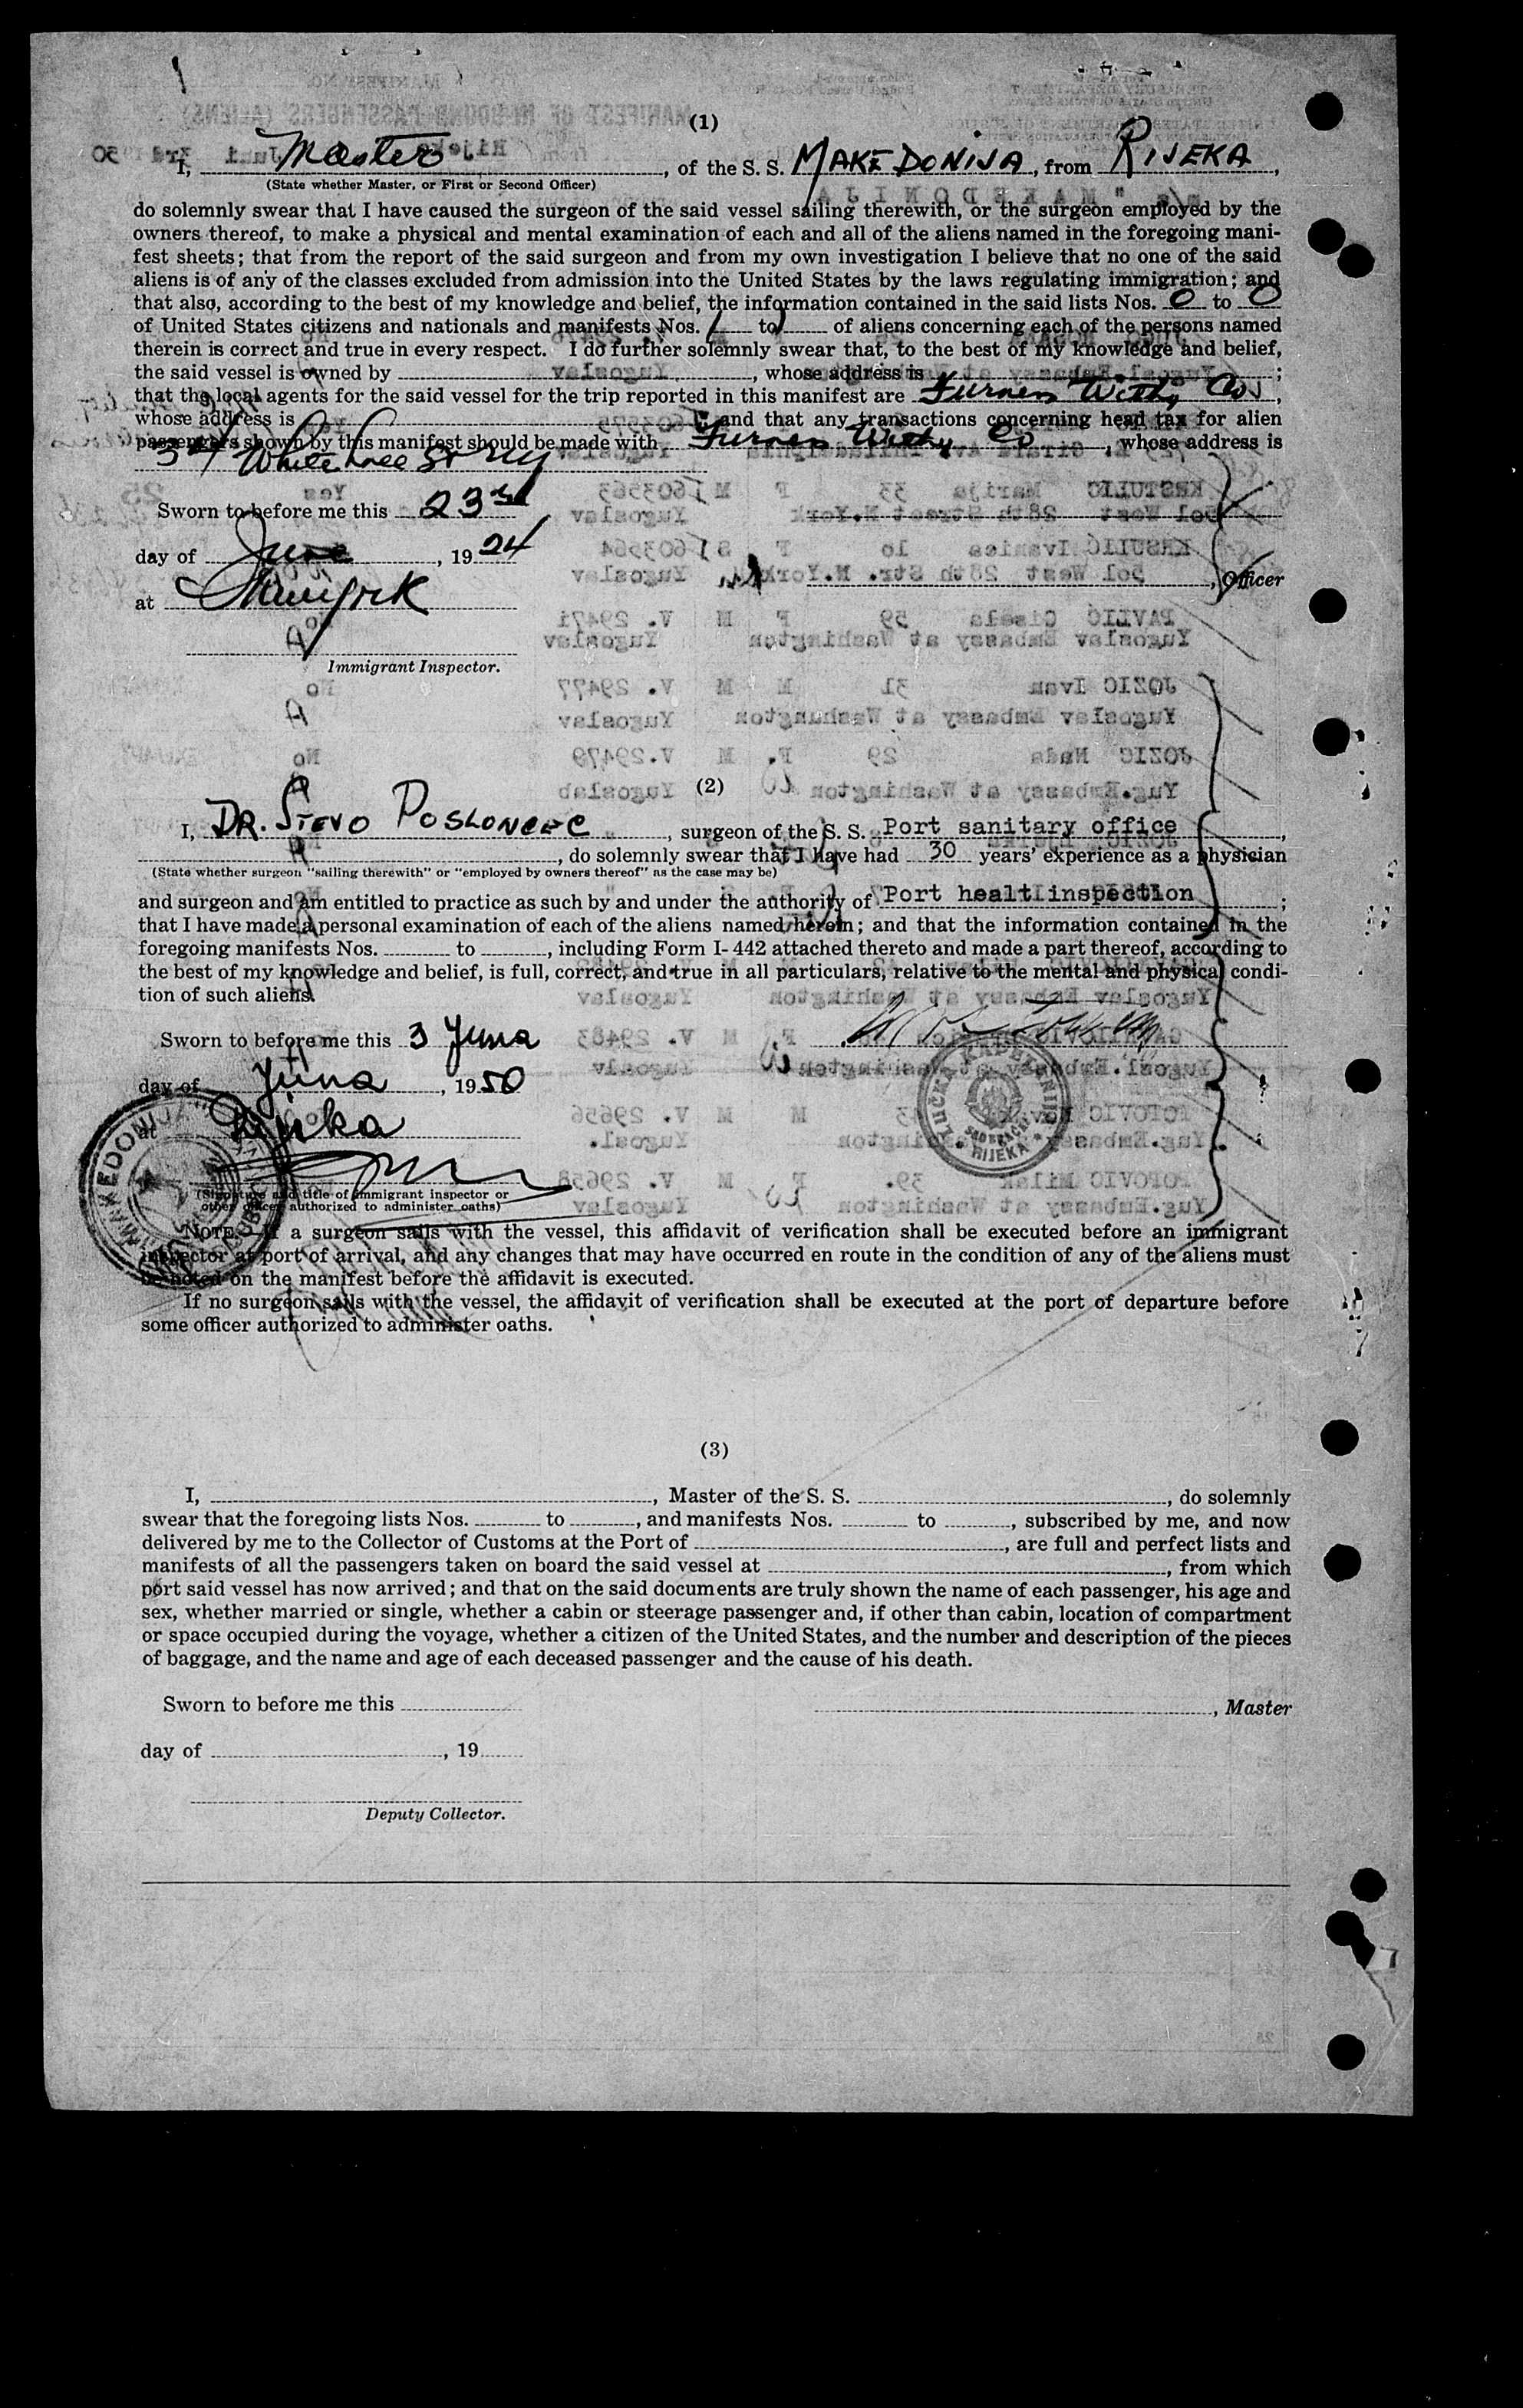 (1)
I, Master, of the S. S. MAKEDONIJA, from RIJEKA,
(State whether Master, or First or Second Officer)
do solemnly swear that I have caused the surgeon of the said vessel sailing therewith, or the surgeon employed by the
owners thereof, to make a physical and mental examination of each and all of the aliens named in the foregoing mani-
fest sheets; that from the report of the said surgeon and from my own investigation I believe that no one of the said
aliens is of any of the classes excluded from admission into the United States by the laws regulating immigration; and
that also, according to the best of my knowledge and belief, the information contained in the said lists Nos. 0 to 0
of United States citizens and nationals and manifests Nos. 1 to 1 of aliens concerning each of the persons named
therein is correct and true in every respect. I do further solemnly swear that, to the best of my knowledge and belief,
the said vessel is owned by , whose address is ;
that the local agents for the said vessel for the trip reported in this manifest are Furness Withy Co,
whose address is ; and that any transactions concerning head tax for alien
passengers shown by this manifest should be made with Furness Withy Co, whose address is
34 Whitehall St NY
Sworn to before me this 23rd
day of June, 1924
, Officer
at
Immigrant Inspector.
(2)
I, DR. STEVO POSLONCEC, surgeon of the S. S. Port sanitary office,
, do solemnly swear that I have had 30 years' experience as a physician
(State whether surgeon "sailing therewith" or "employed by owners thereof" as the case may be)
and surgeon and am entitled to practice as such by and under the authority of Port healt inspection;
that I have made a personal examination of each of the aliens named herein; and that the information contained in the
foregoing manifests Nos. to , including Form I-442 attached thereto and made a part thereof, according to
the best of my knowledge and belief, is full, correct, and true in all particulars, relative to the mental and physical condi-
tion of such aliens.
Sworn to before me this 3 Juna
day of Juna, 1950
at Rijeka
LUČKA KAPETANIJA
RIJEKA
MAKEDONIJA
(Signature and title of immigrant inspector or
other officer authorized to administer oaths)
NOTE.—If a surgeon sails with the vessel, this affidavit of verification shall be executed before an immigrant
inspector at port of arrival, and any changes that may have occurred en route in the condition of any of the aliens must
be noted on the manifest before the affidavit is executed.
If no surgeon sails with the vessel, the affidavit of verification shall be executed at the port of departure before
some officer authorized to administer oaths.
(3)
I, , Master of the S. S. , do solemnly
swear that the foregoing lists Nos. to , and manifests Nos. to , subscribed by me, and now
delivered by me to the Collector of Customs at the Port of , are full and perfect lists and
manifests of all the passengers taken on board the said vessel at , from which
port said vessel has now arrived; and that on the said documents are truly shown the name of each passenger, his age and
sex, whether married or single, whether a cabin or steerage passenger and, if other than cabin, location of compartment
or space occupied during the voyage, whether a citizen of the United States, and the number and description of the pieces
of baggage, and the name and age of each deceased passenger and the cause of his death.
Sworn to before me this
, Master
day of , 19
Deputy Collector.